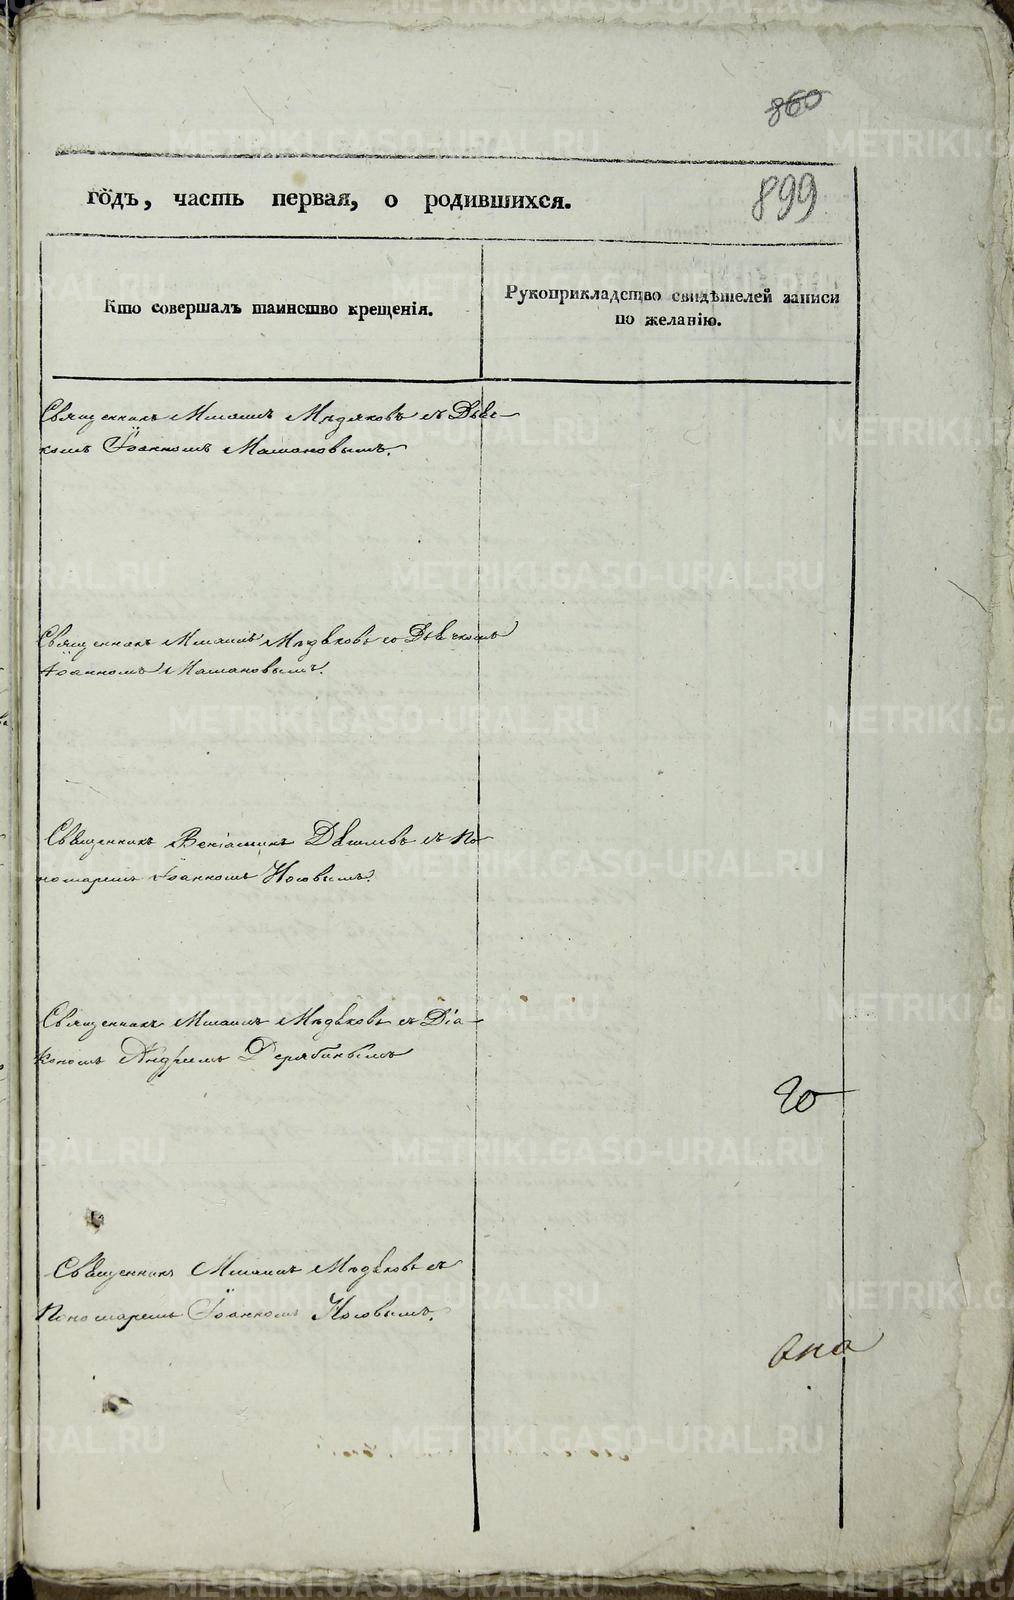 860
899
годъ, часть первая, о родившихся.
Кто совершалъ таинство крещенія.
Рукоприкладство свидѣтелей записи
по желанію.
Священникъ Мѣдяковъ съ Дьяч-
комъ Іоанномъ Машановымъ.
Священникъ Мѣдяковъ со Дьячкомъ
Іоанномъ Машановымъ.
Священникъ Веніаминъ съ По-
номаремъ Іоанномъ Носовымъ.
Священникъ Мѣдяковъ съ Діа-
кономъ Андреемъ Дерябинымъ
Священникъ Мѣдяковъ съ
Пономаремъ Іоанномъ Носовымъ.
METRIKI.GASO-URAL.RU